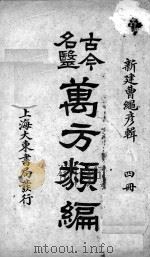 新建曹繩彥輯 四冊
古今
名醫
萬方類編
上海大東書局發行